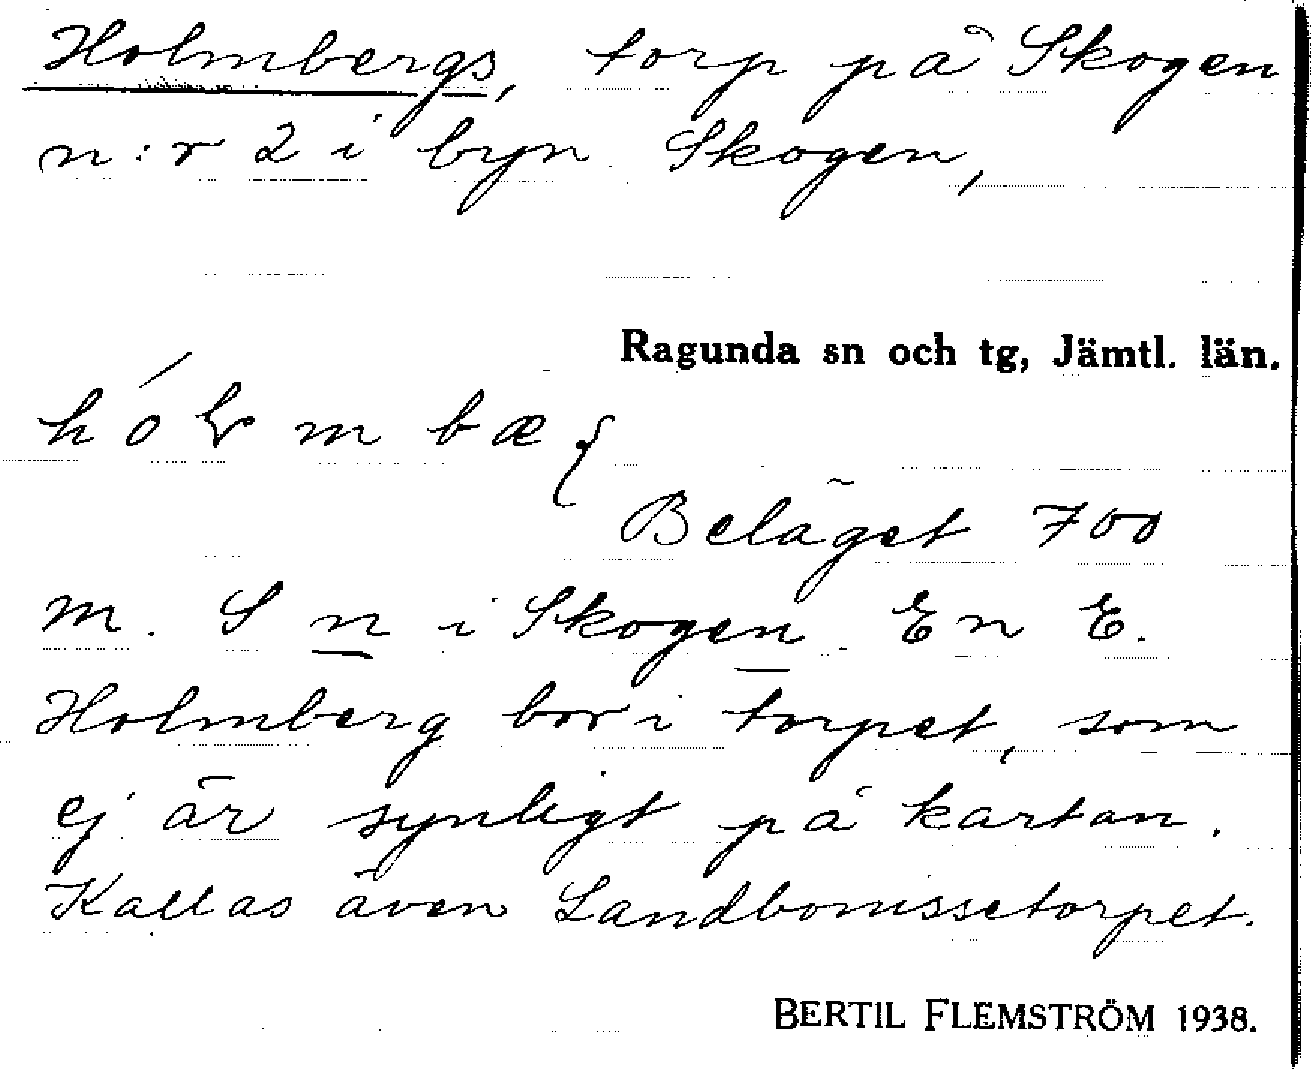 Holmbergs, torp på Skogen
n:r 2 i byn Skogen,
Ragunda sn och tg, Jämtl. län.
Beläget 700
m. S n i Skogen. En E.
Holmberg bor i torpet, som
ej är synligt på kartan.
Kallas även Landbonissetorpet.
BERTIL FLEMSTRÖM 1938.